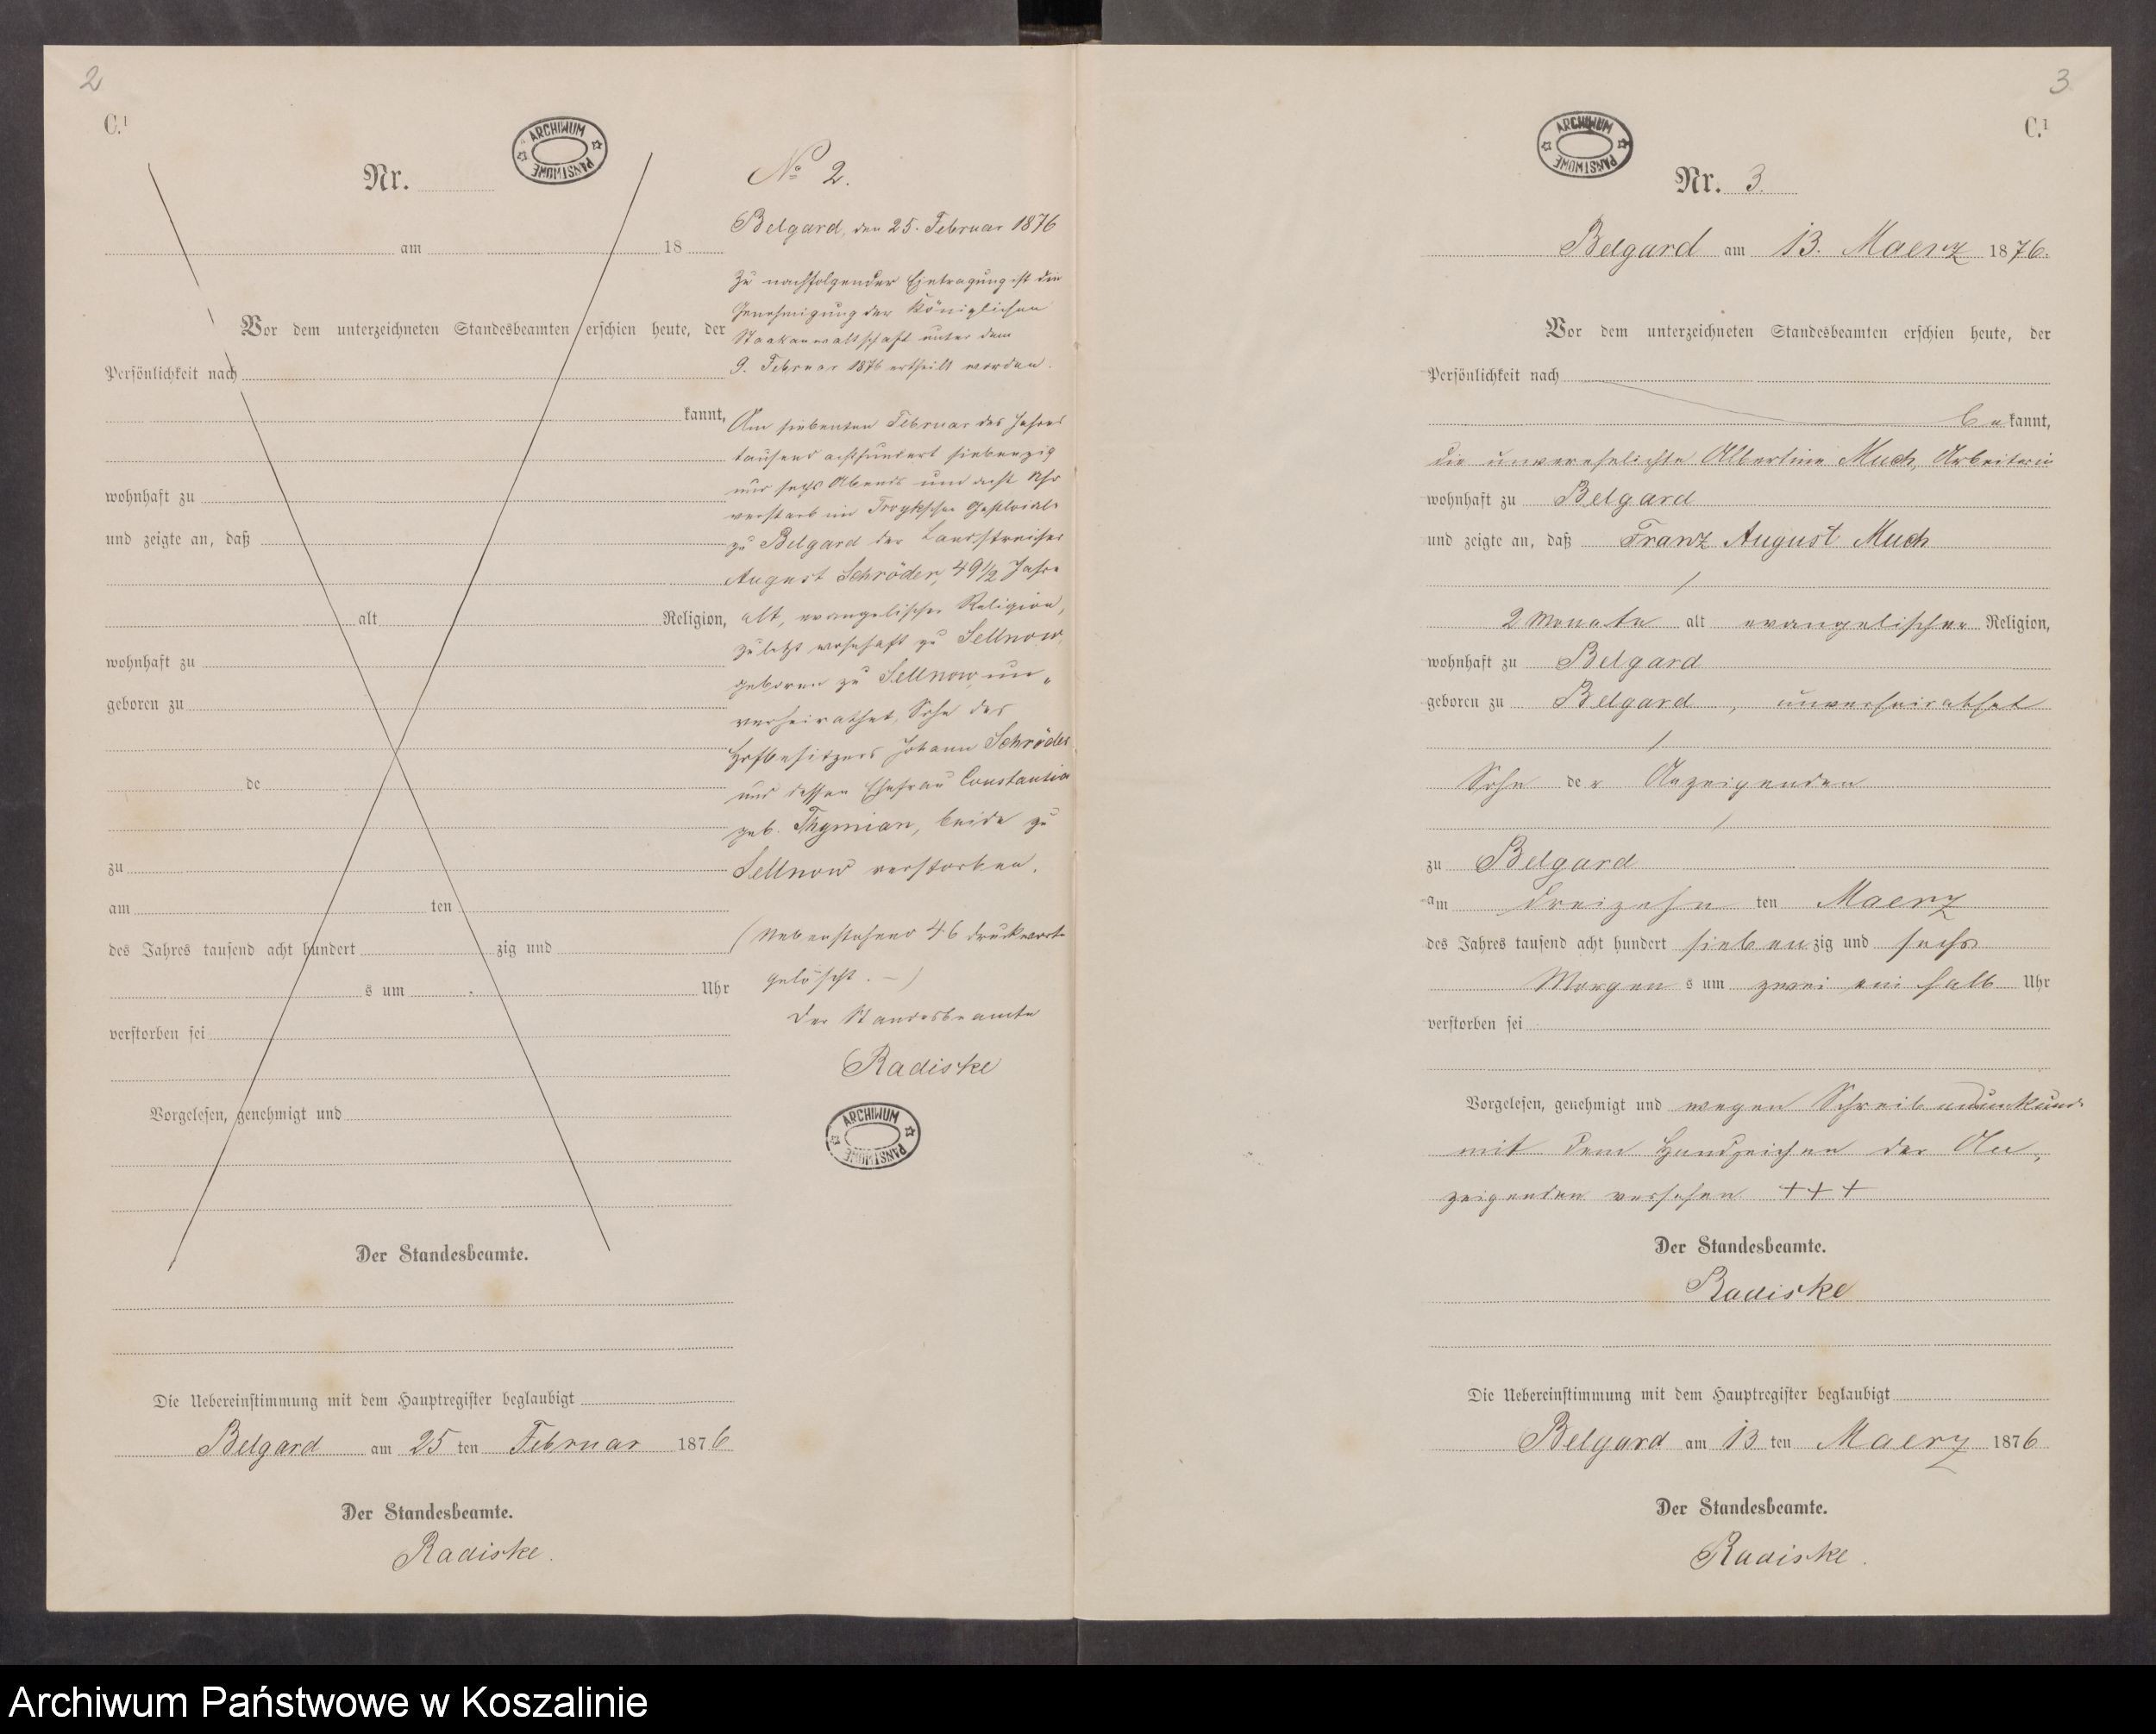 2
C.¹
ARCHIWUM PAŃSTWOWE
Nr.
am 18
Vor dem unterzeichneten Standesbeamten erschien heute, der
Persönlichkeit nach
kannt,
wohnhaft zu
und zeigte an, daß
alt Religion,
wohnhaft zu
geboren zu
de
zu
am ten
des Jahres tausend acht hundert zig und
s um Uhr
verstorben sei
Vorgelesen, genehmigt und
Der Standesbeamte.
Die Uebereinstimmung mit dem Hauptregister beglaubigt
Belgard am 25 ten Februar 1876
Der Standesbeamte.
Radiske.
No 2.
Belgard, den 25. Februar 1876
Zu nachfolgender Eintragung ist die
Genehmigung der Königlichen
Staatsanwaltschaft unter dem
9. Februar 1876 ertheilt worden.
Am siebenten Februar des Jahres
tausend achthundert siebenzig
und sechs Abends um acht Uhr
verstarb im
zu Belgard der Landstreicher
August Schröder, 49 1/2 Jahre
alt, evangelischer Religion,
zuletzt wohnhaft zu Sellnow,
geboren zu Sellnow, un-
verheirathet, Sohn des
Hofbesitzers Johann Schröder
und dessen Ehefrau Constantia
geb. Thymian, beide zu
Sellnow verstorben.
(Nebenstehend 46 Druckworte
gelöscht. —)
Der Standesbeamte
Radiske
ARCHIWUM PAŃSTWOWE
3
C.¹
ARCHIWUM PAŃSTWOWE
Nr. 3.
Belgard am 13. Maerz 1876.
Vor dem unterzeichneten Standesbeamten erschien heute, der
Persönlichkeit nach
bekannt,
die unverehelichte Albertine Much, Arbeiterin
wohnhaft zu Belgard
und zeigte an, daß Franz August Much
2 Monate alt evangelischer Religion,
wohnhaft zu Belgard
geboren zu Belgard, unverheirathet
Sohn der Anzeigenden
zu Belgard
am dreizehn ten Maerz
des Jahres tausend acht hundert siebenzig und sechs
Morgens um zwei ein halb Uhr
verstorben sei
Vorgelesen, genehmigt und wegen
mit dem Handzeichen der An-
zeigenden versehen +++
Der Standesbeamte.
Radiske
Die Uebereinstimmung mit dem Hauptregister beglaubigt
Belgard am 13 ten Maerz 1876
Der Standesbeamte.
Radiske.
Archiwum Państwowe w Koszalinie